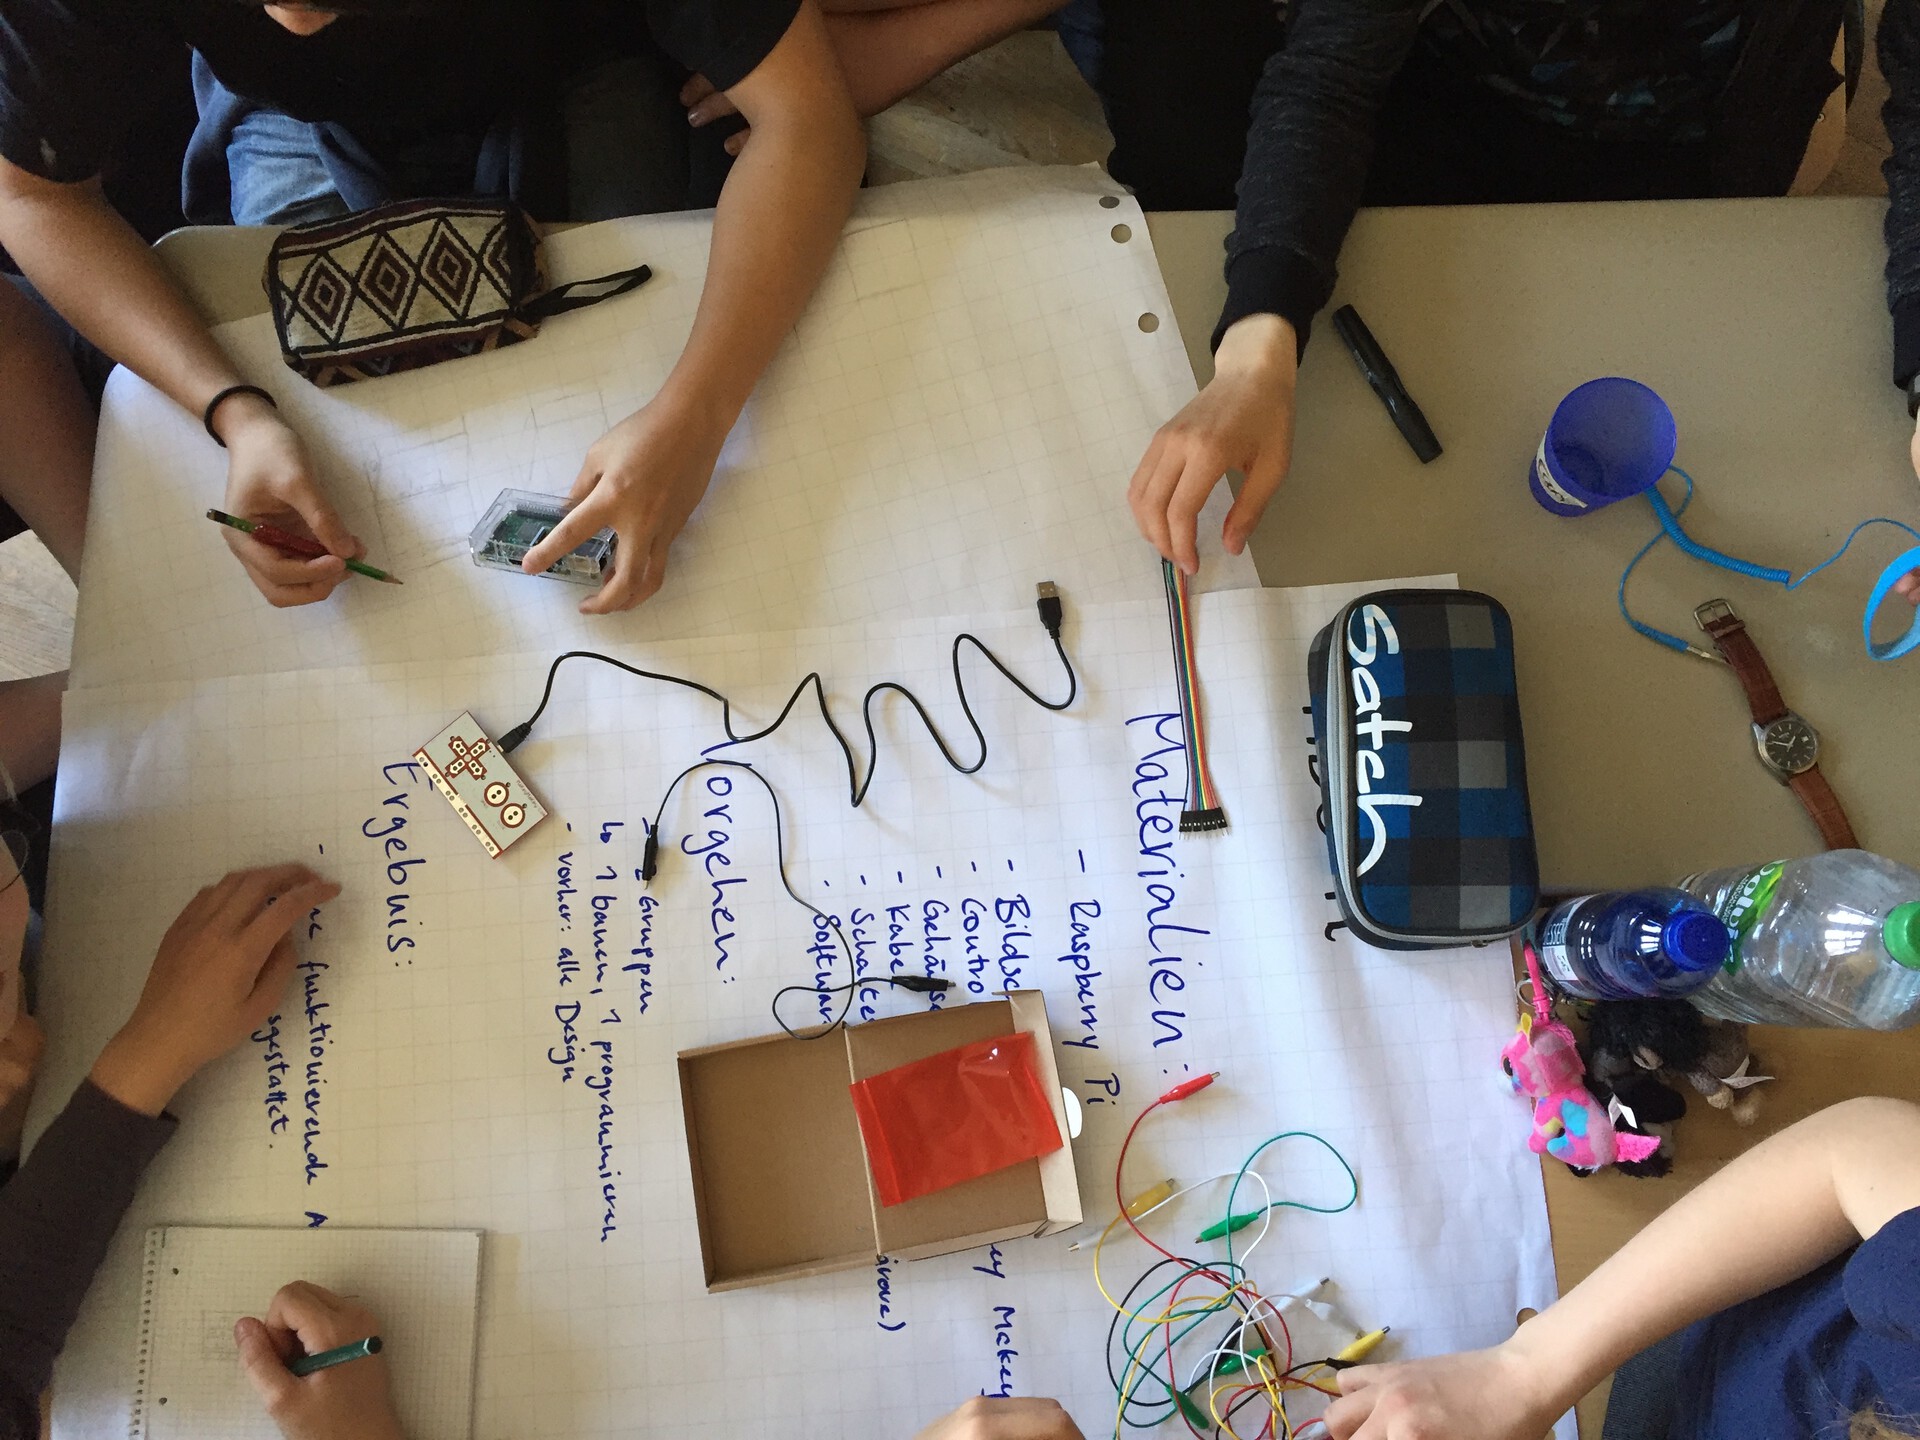 satch
Materialien:
- Raspberry Pi
- Bildsc
- Contro
ey Makey
- Gehäuse
- Kabel
- Schalte
- Softwar
Vorgehen:
- 2 Gruppen
↳ 1 bauen, 1 programmieren
- vorher: alle Design
Ergebnis:
- ne funktionierende A
sgestattet.